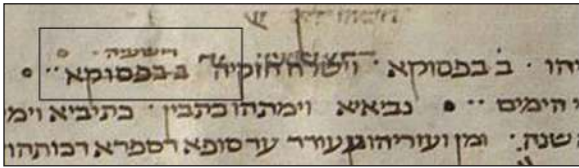 דישעיה
יהו · ב בפסוקא · וישלח חזקיה ב בפסוקא ··
הימים ·· נביאיא וימתהו כתבין · כתיביא וימ
שנה · ומן ועזריהו בן עודד עד סופא דספרא דכותהו